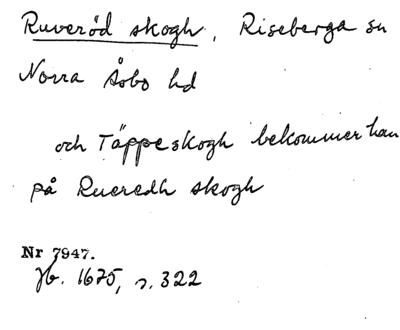 Ruveröd skogh, Riseberga sn
Norra Åsbo hd
och Täppeskogh bekommer han
på Rueredh skogh
Nr 7947.
Jb. 1675, s. 322